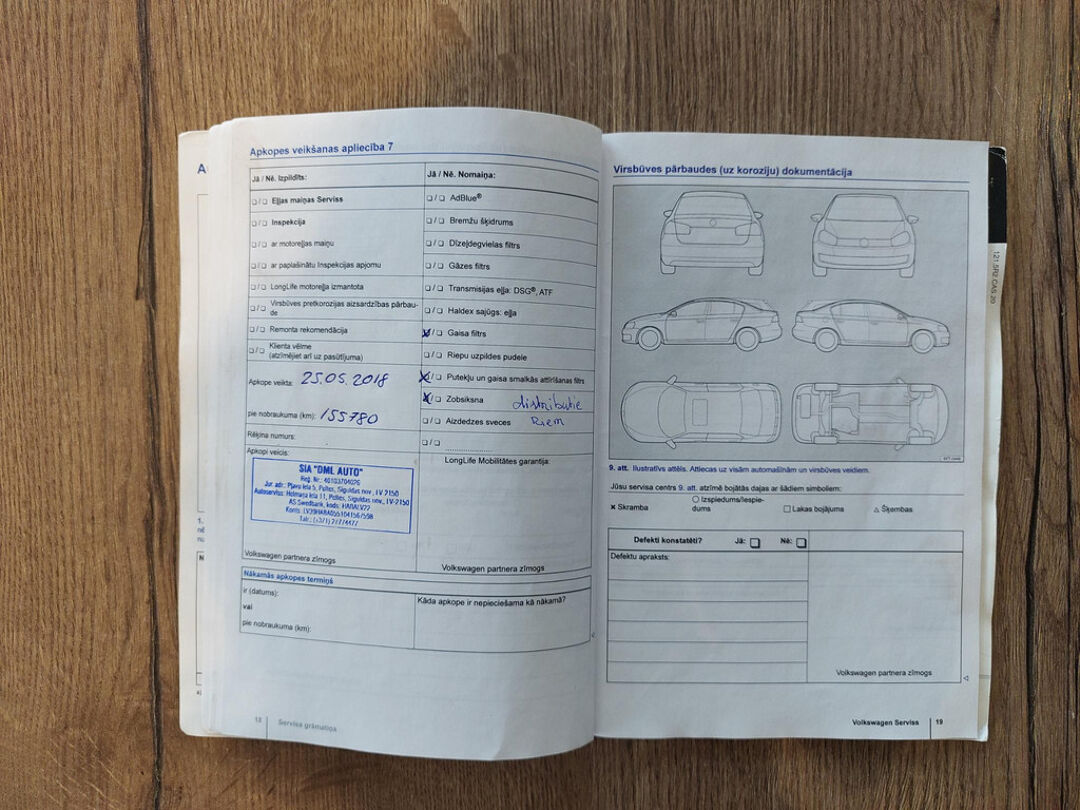 Apkopes veikšanas apliecība 7
Jā / Nē. Izpildīts:
❑ / ❑ Eļļas maiņas Serviss
❑ / ❑ Inspekcija
❑ / ❑ ar motoreļļas maiņu
❑ / ❑ ar paplašinātu Inspekcijas apjomu
❑ / ❑ LongLife motoreļļa izmantota
❑ / ❑ Virsbūves pretkorozijas aizsardzības pārbau-
de
❑ / ❑ Remonta rekomendācija
❑ / ❑ Klienta vēlme
(atzīmējiet arī uz pasūtījuma)
Apkope veikta: 25.05.2018
pie nobraukuma (km): 155780
Rēķina numurs:
Apkopi veicis:
SIA "DML AUTO"
Reģ. Nr.: 40103704026
Jur. adr.: Pļavu iela 5, Peltes, Siguldas nov., LV 2150
Autoserviss: Helmaņa iela 11, Peltes, Siguldas nov., LV-2150
AS Swedbank, kods: HABALV22
Konts:
Tālr.:
Volkswagen partnera zīmogs
Jā / Nē. Nomaiņa:
❑ / ❑ AdBlue®
❑ / ❑ Bremžu šķidrums
❑ / ❑ Dīzeļdegvielas filtrs
❑ / ❑ Gāzes filtrs
❑ / ❑ Transmisijas eļļa: DSG®, ATF
❑ / ❑ Haldex sajūgs: eļļa
❑ / ❑ Gaisa filtrs
❑ / ❑ Riepu uzpildes pudele
❑ / ❑ Putekļu un gaisa smalkās attīrīšanas filtrs
❑ / ❑ Zobsiksna distributie
❑ / ❑ Aizdedzes sveces Riem
❑ / ❑
LongLife Mobilitātes garantija:
Volkswagen partnera zīmogs
Nākamās apkopes termiņš
ir (datums):
vai
pie nobraukuma (km):
Kāda apkope ir nepieciešama kā nākamā?
18 Servisa grāmatiņa
Virsbūves pārbaudes (uz koroziju) dokumentācija
9. att. Ilustratīvs attēls. Attiecas uz visām automašīnām un virsbūves veidiem.
Jūsu servisa centrs 9. att. atzīmē bojātās daļas ar šādiem simboliem:
× Skramba
○ Izspiedums/Iespie-
dums
□ Lakas bojājums
△ Šķembas
Defekti konstatēti? Jā: ❑ Nē: ❑
Defektu apraksts:
Volkswagen partnera zīmogs
Volkswagen Serviss 19
121.5R2.CAS.20